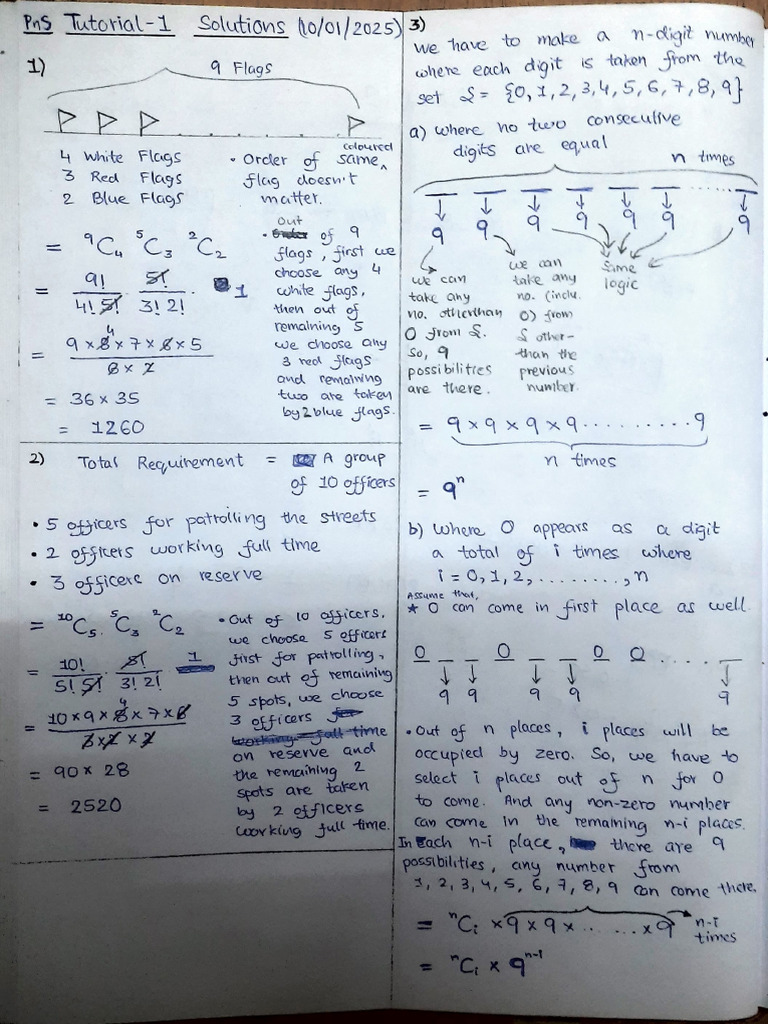 PnS Tutorial-1 Solutions (10/01/2025)
1)
9 Flags
4 White Flags
3 Red Flags
2 Blue Flags
• Order of same coloured
flag doesn't
matter.
= ⁹C₄ ⁵C₃ ²C₂
= 9!/(4! 5!) · 5!/(3! 2!) · 1
= (9 × 8 × 7 × 6 × 5)/(6 × 2) 4
= 36 × 35
= 1260
• out of 9
flags, first we
choose any 4
white flags,
then out of
remaining 5
we choose any
3 red flags
and remaining
two are taken
by 2 blue flags.
2) Total Requirement = A group
of 10 officers
• 5 officers for patrolling the streets
• 2 officers working full time
• 3 officere on reserve
= ¹⁰C₅ · ⁵C₃ ²C₂
= 10!/(5! 5!) · 5!/(3! 2!) 1
= (10 × 9 × 8 × 7 × 6)/(3 × 2 × 2) 4
= 90 × 28
= 2520
• Out of 10 officers,
we choose 5 officers
first for patrolling,
then out of remaining
5 spots, we choose
3 officers for
working full time
on reserve and
the remaining 2
spots are taken
by 2 officers
working full time.
3)
We have to make a n-digit number
where each digit is taken from the
set S = {0, 1, 2, 3, 4, 5, 6, 7, 8, 9}
a) where no two consecutive
digits are equal
n times
9 9 9 9 9 9 9
we can
take any
no. otherthan
0 from S.
So, 9
possibilities
are there.
we can
take any
no. (inclu.
0) from
S other-
than the
previous
number.
same
logic
= 9 × 9 × 9 × 9 ......... 9
n times
= 9ⁿ
b) Where 0 appears as a digit
a total of i times where
i = 0, 1, 2, ........., n
Assume that,
* 0 can come in first place as well.
0 _ _ 0 _ _ 0 0 ..... _
9 9 9 9 9
• Out of n places, i places will be
occupied by zero. So, we have to
select i places out of n for 0
to come. And any non-zero number
can come in the remaining n-i places.
In Each n-i place, there are 9
possibilities, any number from
1, 2, 3, 4, 5, 6, 7, 8, 9 can come there.
= ⁿCᵢ × 9 × 9 × ....... × 9 n-i
times
= ⁿCᵢ × 9ⁿ⁻ⁱ